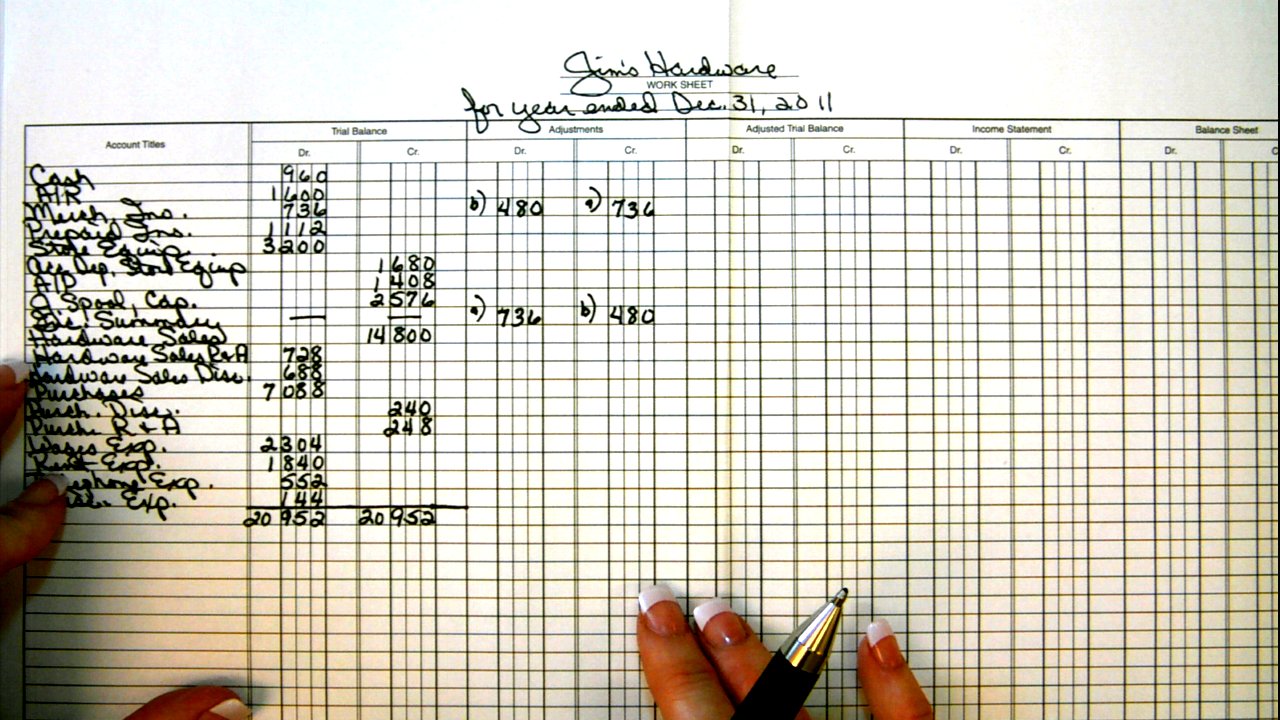 Jim's Hardware
WORK SHEET
for year ended Dec. 31, 2011
Account Titles Trial Balance Adjustments Adjusted Trial Balance Income Statement Balance Sheet
Dr. Cr. Dr. Cr. Dr. Cr. Dr. Cr. Dr. C
Cash 960
A/R 1600
Merch. Ins. 736 b) 480 a) 736
Prepaid Ins. 1112
Store Equip. 3200
Acc Dep, Store Equip 1680
A/P 1408
J. Spool, Cap. 2576
Inc. Summary — — a) 736 b) 480
Hardware Sales 14800
Hardware Sales R&A 728
Hardware Sales Disc. 688
Purchases 7088
Purch. Disc. 240
Purch. R & A 248
Wages Exp. 2304
Rent Exp. 1840
Telephone Exp. 552
Exp. 144
20952 20952